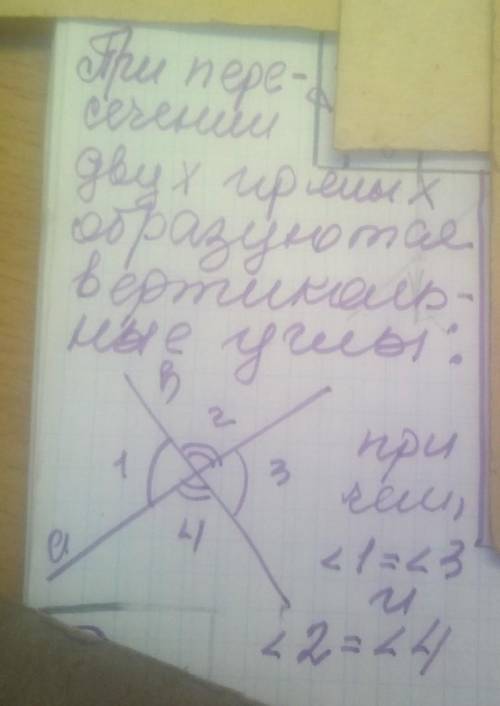 При пере-
сечении
двух прямых
образуются
вертикаль-
ные углы:
в
2
1
3
4
а
при
чем,
∠1=∠3
и
∠2=∠4